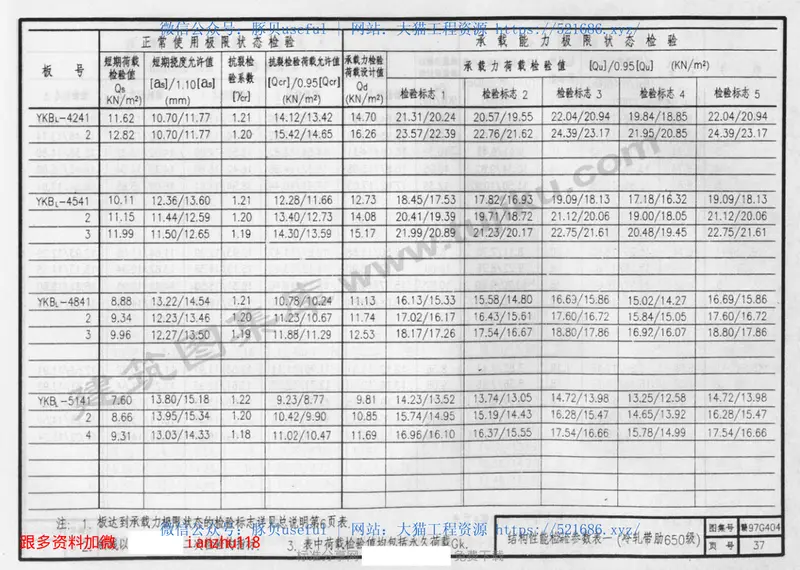 微信公众号：豚贝useful | 网站：大猫工程资源 https://521686.xyz/
正常使用极限状态检验 承载能力极限状态检验
板号 短期荷载检验值 Qs KN/m²) 短期挠度允许值 [as]/1.10[as] (mm) 抗裂检验系数 [γcr] 抗裂检验荷载允许值 [Qcr]/0.95[Qcr] (KN/m²) 承载力检验荷载设计值 Qd (KN/m²) 承载力荷载检验值 [Qu]/0.95[Qu] (KN/m²)
检验标志 1 检验标志 2 检验标志 3 检验标志 4 检验标志 5
YKBL-4241 11.62 10.70/11.77 1.21 14.12/13.42 14.70 21.31/20.24 20.57/19.55 22.04/20.94 19.84/18.85 22.04/20.94
2 12.82 10.70/11.77 1.20 15.42/14.65 16.26 23.57/22.39 22.76/21.62 24.39/23.17 21.95/20.85 24.39/23.17
YKBL-4541 10.11 12.36/13.60 1.21 12.28/11.66 12.73 18.45/17.53 17.82/16.93 19.09/18.13 17.18/16.32 19.09/18.13
2 11.15 11.44/12.59 1.20 13.40/12.73 14.08 20.41/19.39 19.71/18.72 21.12/20.06 19.00/18.05 21.12/20.06
3 11.99 11.50/12.65 1.19 14.30/13.59 15.17 21.99/20.89 21.23/20.17 22.75/21.61 20.48/19.45 22.75/21.61
YKBL-4841 8.88 13.22/14.54 1.21 10.78/10.24 11.13 16.13/15.33 15.58/14.80 16.69/15.86 15.02/14.27 16.69/15.86
2 9.34 12.23/13.46 1.20 11.23/10.67 11.74 17.02/16.17 16.43/15.61 17.60/16.72 15.84/15.05 17.60/16.72
3 9.96 12.27/13.50 1.19 11.88/11.29 12.53 18.17/17.26 17.54/16.67 18.80/17.86 16.92/16.07 18.80/17.86
YKBL-5141 7.60 13.80/15.18 1.22 9.23/8.77 9.81 14.23/13.52 13.74/13.05 14.72/13.98 13.25/12.58 14.72/13.98
2 8.66 13.95/15.34 1.20 10.42/9.90 10.85 15.74/14.95 15.19/14.43 16.28/15.47 14.65/13.92 16.28/15.47
4 9.31 13.03/14.33 1.18 11.02/10.47 11.69 16.96/16.10 16.37/15.55 17.54/16.66 15.78/14.99 17.54/16.66
建筑图集库 www.tujiku.com
注: 1. 板达到承载力极限状态的检验标志详见总说明第6页表
微信公众号：豚贝useful | 网站：大猫工程资源 https://521686.xyz/
3. 表中荷载检验值均包括永久荷载Gk.
结构性能检验参数表一 (冷轧带肋650级) 图集号 赣97G404
页号 37
跟多资料加微 ianzhu118
免费下载